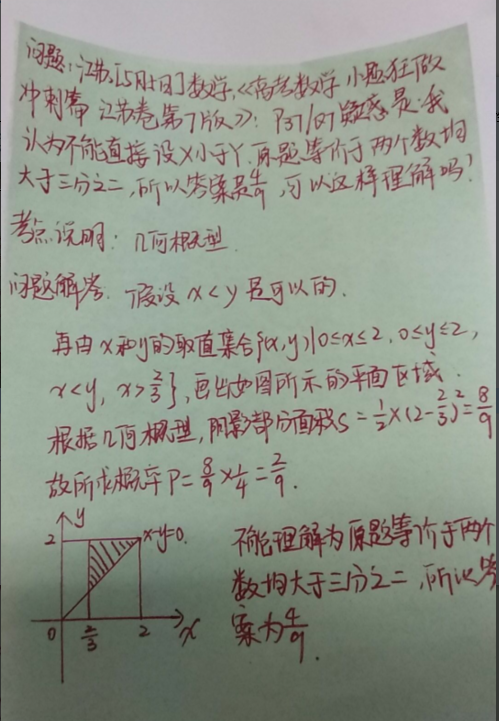 问题:江苏[5月1日]数学,《高考数学 小题狂做
冲刺篇 江苏卷第7版》: P37/07 疑惑是:我
认为不能直接设X小于Y.原题等价于两个数均
大于三分之二,所以答案是4/9,可以这样理解吗?
考点说明: 几何概型.
问题解答. 假设 x<y 是可以的.
再由x和y的取值集合{(x,y)|0≤x≤2, 0≤y≤2,
x<y, x>2/3},画出如图所示的平面区域.
根据几何概型,阴影部分面积S=1/2×(2-2/3)²=8/9
故所求概率P=8/9×1/4=2/9.
y
2
x-y=0.
0
2/3
2
x
不能理解为原题等价于两个
数均大于三分之二,所以答
案为4/9.